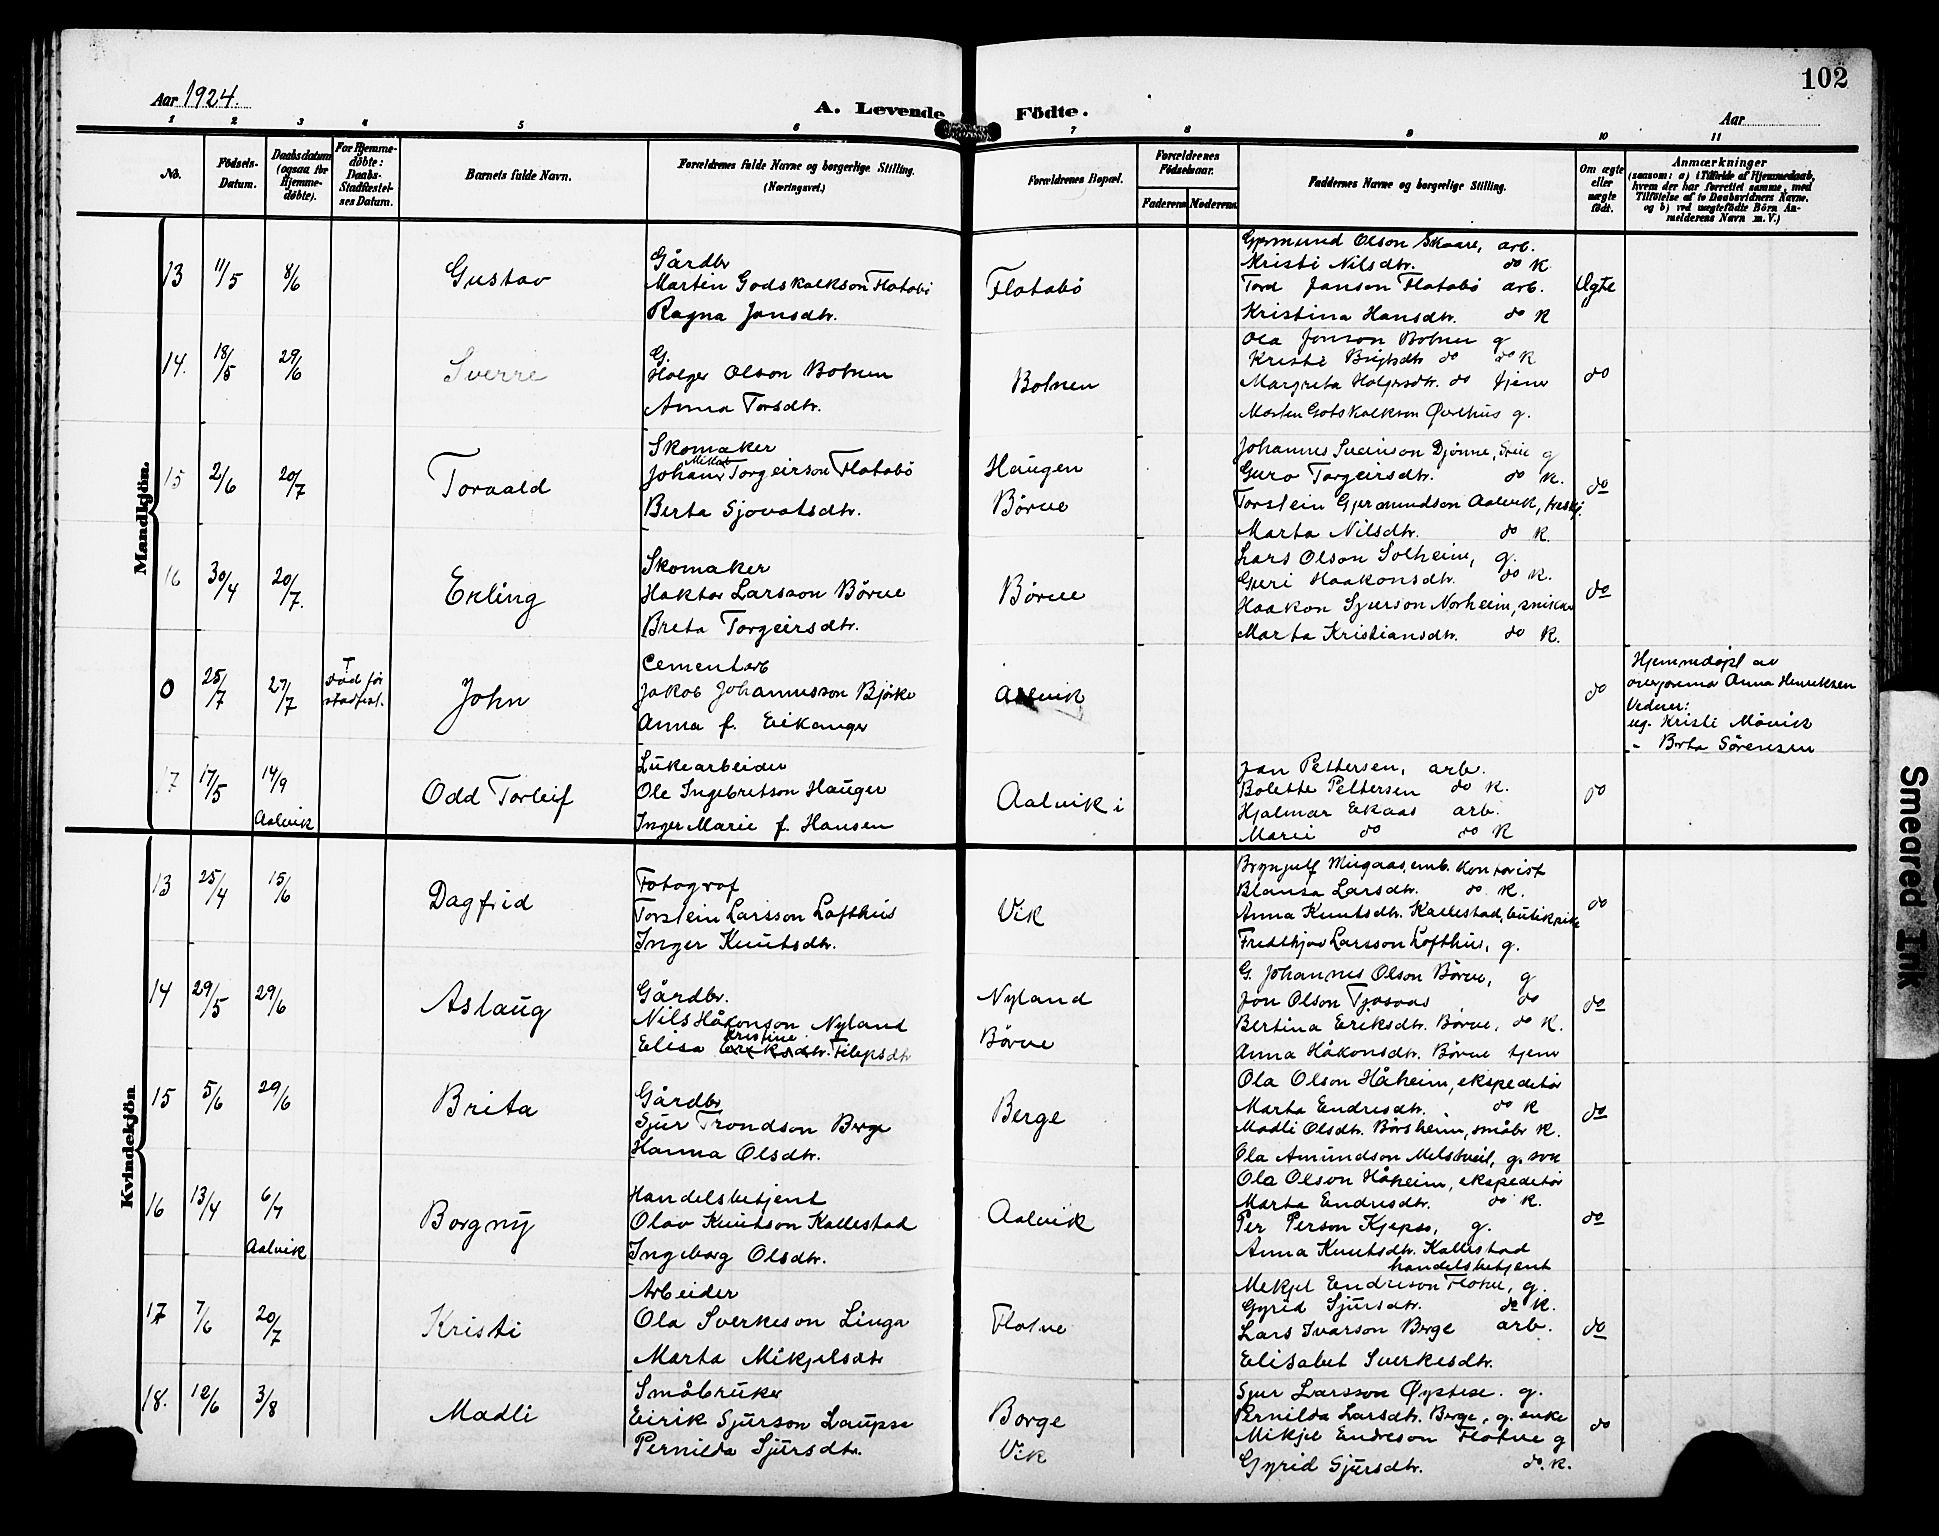 102
Aar 1924.
A. Levende Födte.
Aar
1 2 3 4 5 6 7 8 9 10 11
No.
Födsels-Datum.
Daabsdatum (ogsaa for Hjemme-döbte).
For Hjemme-döbte: Daabs-Stadfæstel-ses Datum.
Barnets fulde Navn.
Forældrenes fulde Navne og borgerlige Stilling. (Næringsvei.)
Forældrenes Bopæl.
Forældrenes Födselsaar.
Faderens Moderens
Faddernes Navne og borgerlige Stilling.
Om ægte eller uægte födt.
Anmærkninger
(saasom: a) i Tilfælde af Hjemmedaab,
hvem der har forrettet samme, med
Tilföielse af to Daabsvidners Navne.
og b) ved uægtefödte Börn An-
melderens Navn m. V.)
Mandkjön.
13 11/5 8/6 Gustav
Gårdbr
Martin Godskalkson Flatabø
Ragna Jonsdtr.
Flatabø
Gjermund Olson Skaare, arb.
Kristi Nilsdtr. do K
Tord Janson Flatabö arb.
Kristina Hansdtr. do K
Ægte
14. 18/5 29/6 Sverre
G.
Holger Olson Botnen
Anna Torsdtr.
Botnen
Ola Jonson Botnen g
Kristi Brigtsdtr do do K
Margreta Holgersdtr. do tjener
Morten Gotskalkson Øvsthus g.
do
15 2/6 20/7 Torvald
Skomaker
Johanes Torgeirson Flatabø
Berta Sjovatsdtr.
Haugen
Børve
Johannes Sveinson Djønne, g
Guro Torgeirsdtr. do K.
Torstein Gjermundson Aalvik,
Marta Nilsdtr. do K.
do
16 30/4 20/7. Erling
Skomaker
Haktor Larsson Børve
Breta Torgeirsdtr.
Børve
Lars Olson Solheim, g.
Guri Haakonsdtr. do K.
Haakon Sjurson Norheim, snikar
Marta Kristiansdtr. do K.
do
0 25/7 27/7
† død før stadfest.
John
Cementarb
Jakob Johannesson Bjørke
Anna f. Eikanger
Aalvik
do
Hjemmedøpt av
Anna Henriksen
Vidner:
ug. Kristi Mövik
" Berta Sörensen
17 17/5 14/9 Aalvik
Odd Torleif
Lukearbeider
Ole Ingebretson Hauger
Inger Marie f. Hansen
Aalvik i
Jan Pettersen, arb.
Bolette Pettersen do K.
Hjalmar Ekaas arb.
Marie do do K
do
Kvindekjön
13 25/4 15/6 Dagfrid
Fotograf
Torstein Larsson Lofthus
Inger Knutsdtr.
Vik
Brynjulf Mugaas, emb. Kontorist
Blansa Larsdtr. do K.
Anna Knutsdtr. Kallestad,
Fredthjov Larsson Lofthus, g.
do
14 29/5 29/6 Aslaug
Gårdbr.
Nils Håkonson Nyland
Elisa Kristine Eriksdtr. Filipsdtr
Nyland
Børve
G. Johannes Olson Börve, g
Jon Olson Tjosaas do
Bertina Eriksdtr. Børve, do K.
Anna Håkonsdtr. Børve tjener
do
15 5/6 29/6 Brita
Gårdbr
Sjur Trondson Berge
Hanna Olsdtr.
Berge
Ola Olson Håheim, ekspeditør
Marta Endresdtr. do K
Madli Olsdtr. Børsheim, småbr K.
Ola Amundson Melstveit, g. søn
do
16 13/4 6/7 Aalvik
Borgny
Handelsbetjent
Olav Knutson Kallestad
Ingeborg Olsdtr.
Aalvik
Ola Olson Håheim, ekspeditør
Marta Endresdtr. do K.
Per Person Kjepso, g.
Anna Knutsdtr. Kallestad
handelsbetjent
do
17 7/6 20/7 Kristi
Arbeider
Ola Sverkeson Linga
Marta Mikjelsdtr
Flotve
Mikjel Endreson Flotve, g.
Gyrid Sjursdtr. do K.
Lars Ivarson Berge arb.
Elisabet Sverkesdtr.
do
18. 12/6 3/8 Madli
Småbruker
Eirik Sjurson Laupsa
Pernilda Sjursdtr.
Borge
Vik
Sjur Larsson Øystese. g.
Pernilda Larsdtr. Berge, g. enke
Mikjel Endreson Flotve g
Gyrid Sjursdtr. do. K.
do
Smeared Ink